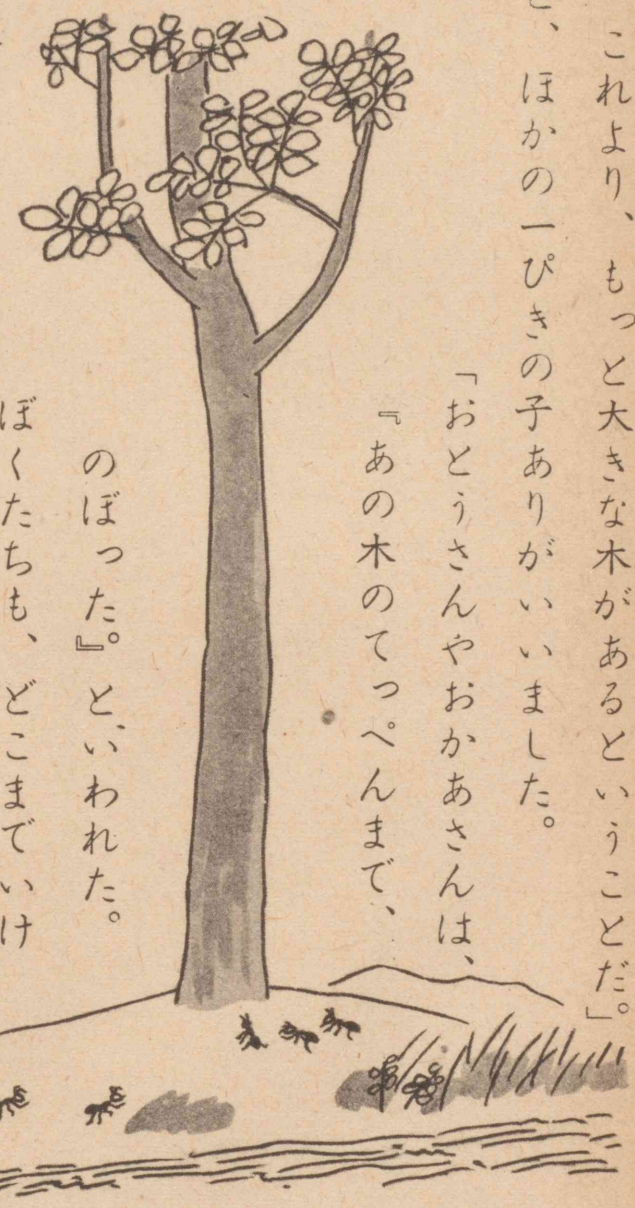 これより、もっと大きな木があるということだ。」
と、ほかの一ぴきの子ありがいいました。
「おとうさんやおかあさんは、
『あの木のてっぺんまで、
のぼった。』と、いわれた。
ぼくたちも、どこまでいけ